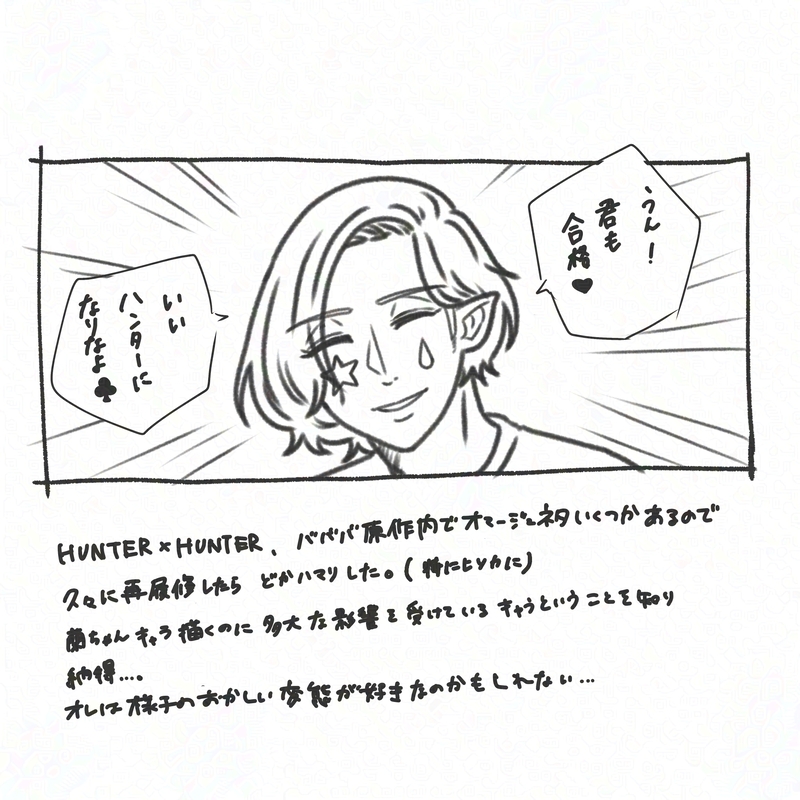 うん!
君も
合格♥
いい
ハンターに
なりなよ♣
HUNTER×HUNTER、バババ原作内でオマージュネタいくつかあるので
久々に再履修したら どハマりした。(特にヒソカに)
蘭ちゃんキャラ描くのに多大な影響を受けているキャラということを知り
納得…。
オレは様子のおかしい変態が好きなのかもしれない…